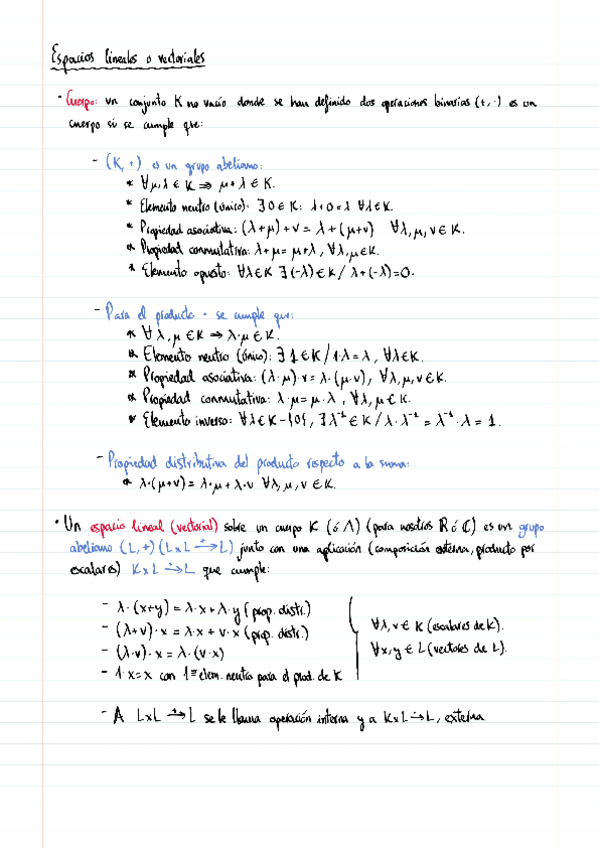 Espacios lineales o vectoriales
· Cuerpo: un conjunto K no vacío donde se han definido dos operaciones binarias (+, ·) es un
cuerpo si se cumple que:
- (K, +) es un grupo abeliano:
* ∀μ, λ ∈ K ⇒ μ+λ ∈ K.
* Elemento neutro (único): ∃ 0 ∈ K: λ+0=λ ∀λ∈K.
* Propiedad asociativa: (λ+μ)+ν = λ+(μ+ν) ∀λ, μ, ν ∈ K.
* Propiedad conmutativa: λ+μ = μ+λ, ∀λ, μ∈K.
* Elemento opuesto: ∀λ∈K ∃(-λ)∈K / λ+(-λ)=0.
- Para el producto · se cumple que:
* ∀λ, μ ∈ K ⇒ λ·μ ∈ K.
* Elemento neutro (único): ∃ 1 ∈ K / 1·λ = λ, ∀λ∈K.
* Propiedad asociativa: (λ·μ)·ν = λ·(μ·ν), ∀λ, μ, ν ∈ K.
* Propiedad conmutativa: λ·μ = μ·λ, ∀λ, μ ∈ K.
* Elemento inverso: ∀λ∈K-{0}, ∃λ⁻¹∈K / λ·λ⁻¹ = λ⁻¹·λ = 1.
- Propiedad distributiva del producto respecto a la suma:
* λ·(μ+ν) = λ·μ + λ·ν ∀λ, μ, ν ∈ K.
· Un espacio lineal (vectorial) sobre un cuerpo K (ó Λ) (para nosotros ℝ ó ℂ) es un grupo
abeliano (L, +) (L×L ⟶⁺ L) junto con una aplicación (composición externa, producto por
escalares) K×L ⟶˙ L que cumple:
- λ·(x+y) = λ·x + λ·y (prop. distr.)
- (λ+ν)·x = λ·x + ν·x (prop. distr.)
- (λ·ν)·x = λ·(ν·x)
- 1·x=x con 1 ≡ elem. neutro para el prod. de K
∀λ, ν ∈ K (escalares de K).
∀x, y ∈ L (vectores de L).
- A L×L ⟶⁺ L se le llama operación interna y a K×L ⟶˙ L, externa